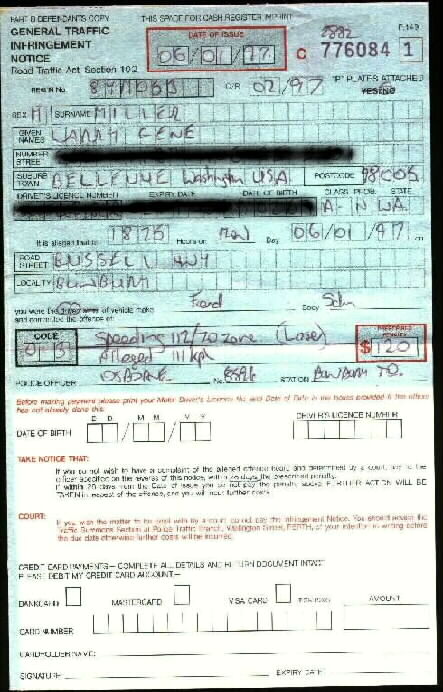 PART B DEFENDANTS COPY THIS SPACE FOR CASH REGISTER IMPRINT
GENERAL TRAFFIC INFRINGEMENT NOTICE
DATE OF ISSUE
06/01/97
C 776084 1
Road Traffic Act Section 102
"P" PLATES ATTACHED
REGN No C/R 02/97 YES/NO
SEX M SURNAME MILLER
GIVEN NAMES GENE
NUMBER STREET
SUBURB TOWN BELLEVUE Washington USA. POSTCODE 98005
DRIVER'S LICENCE NUMBER EXPIRY DATE DATE OF BIRTH CLASS PROB. STATE
A - N WA
It is alleged that at 1825 Hours on Mon Day 06/01/97
ROAD STREET BUSSELL HWY
LOCALITY BUNBURY
you were the driver of vehicle make Ford Body Sdn
and committed the offence of:
CODE Speeding 112/70 zone (Laser)
Alleged 111 kph
PRESCRIBED PENALTY
$ 120
POLICE OFFICER No. STATION Bunbury
Before making payment please print your Motor Driver's Licence No and Date of Birth in the boxes provided if the officer has not already done this.
D D M M Y Y DRIVER'S LICENCE NUMBER
DATE OF BIRTH / /
TAKE NOTICE THAT:
If you do not wish to have a complaint of the alleged offence heard and determined by a court, pay to the officer specified on the reverse of this notice, within 28 days the prescribed penalty.
If within 28 days from the Date of Issue you do not pay the penalty above FURTHER ACTION WILL BE TAKEN in respect of the offence, and you will incur further costs.
COURT:
If you wish the matter to be dealt with by a court do not pay the Infringement Notice. You should advise the Traffic Summons Section at Police Traffic Branch, Wellington Street, PERTH, of your intention in writing before the due date otherwise further costs will be incurred.
CREDIT CARD PAYMENTS — COMPLETE ALL DETAILS AND RETURN DOCUMENT INTACT
PLEASE DEBIT MY CREDIT CARD ACCOUNT:—
BANKCARD MASTERCARD VISA CARD AMOUNT
CARD NUMBER
CARDHOLDER NAME:
SIGNATURE EXPIRY DATE